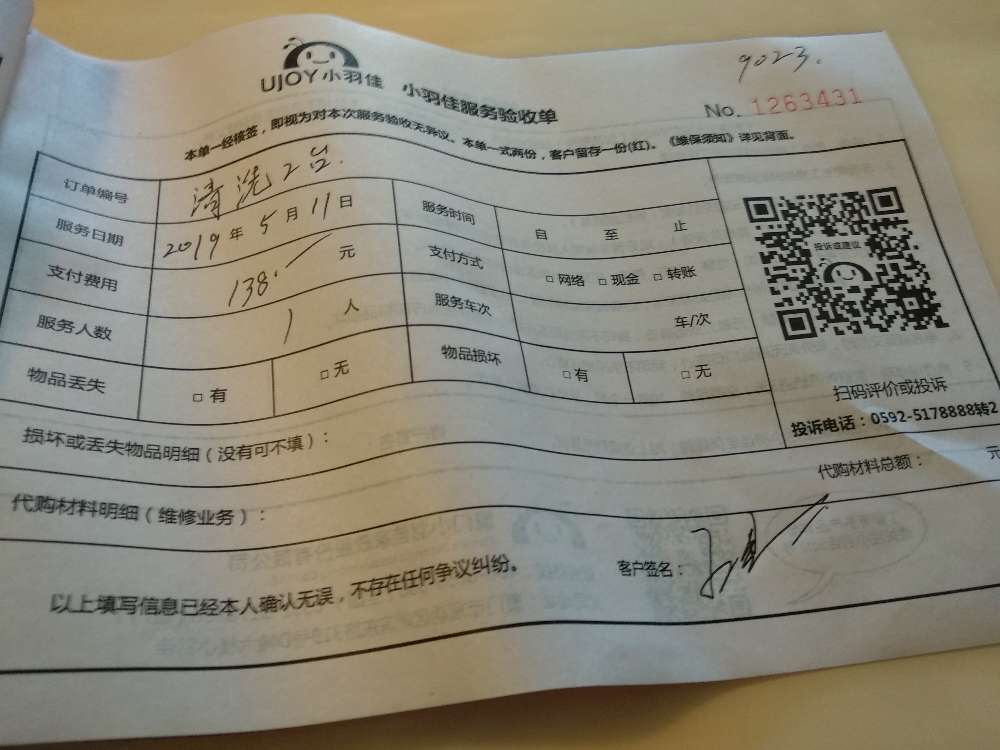 9023.
UJOY小羽佳 小羽佳服务验收单
No. 1263431
本单一经核签，即视为对本次服务验收无异议。本单一式两份，客户留存一份(红)。《维保须知》详见背面。
订单编号 清洗2台.
服务日期 2019年5月11日 服务时间 自 至 止
支付费用 138.一元 支付方式 □ 网络 □ 现金 □ 转账
服务人数 1 人 服务车次 车/次
物品丢失 □ 有 □ 无 物品损坏 □ 有 □ 无
投诉或建议
扫码评价或投诉
投诉电话：0592-5178888转2
损坏或丢失物品明细（没有可不填）：
代购材料明细（维修业务）： 代购材料总额： 元
以上填写信息已经本人确认无误，不存在任何争议纠纷。 客户签名：